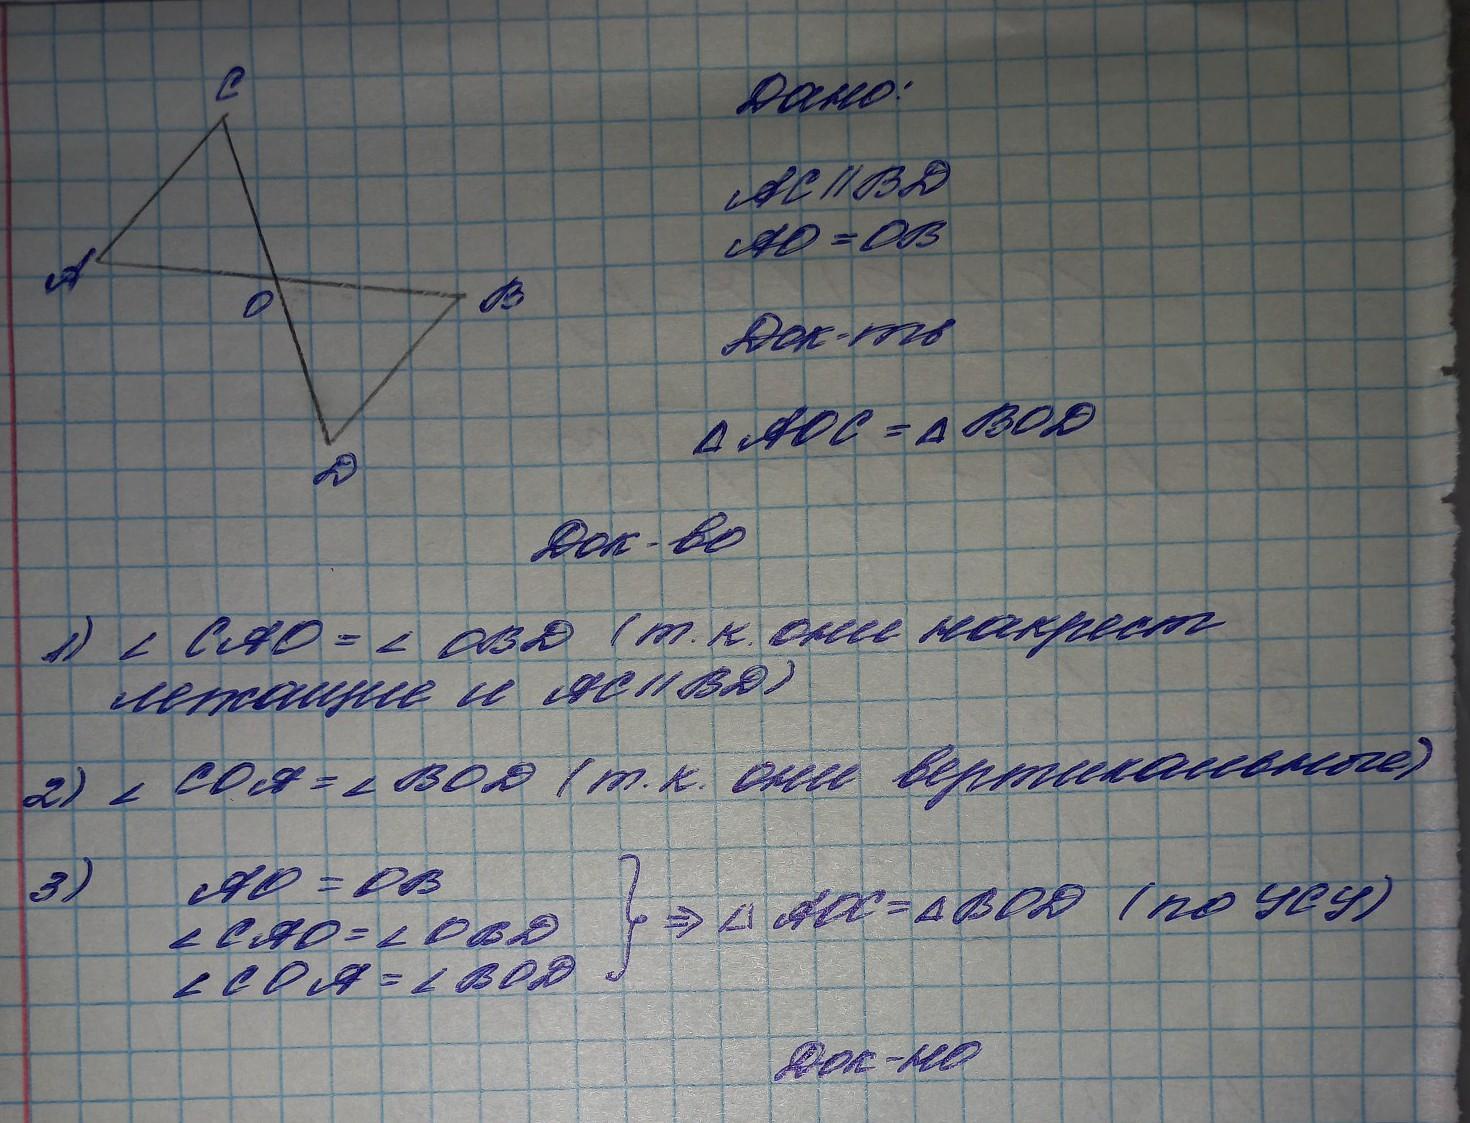 C
A
O
B
D
Дано:
AC || BD
AO = OB
Док-ть
△ AOC = △ BOD
Док-во
1) ∠ CAO = ∠ OBD (т.к. они накрест
лежащие и AC || BD)
2) ∠ COA = ∠ BOD (т.к. они вертикальные)
3) AO = OB
∠ CAO = ∠ OBD
∠ COA = ∠ BOD
} ⇒ △ AOC = △ BOD (по УСУ)
Док-но